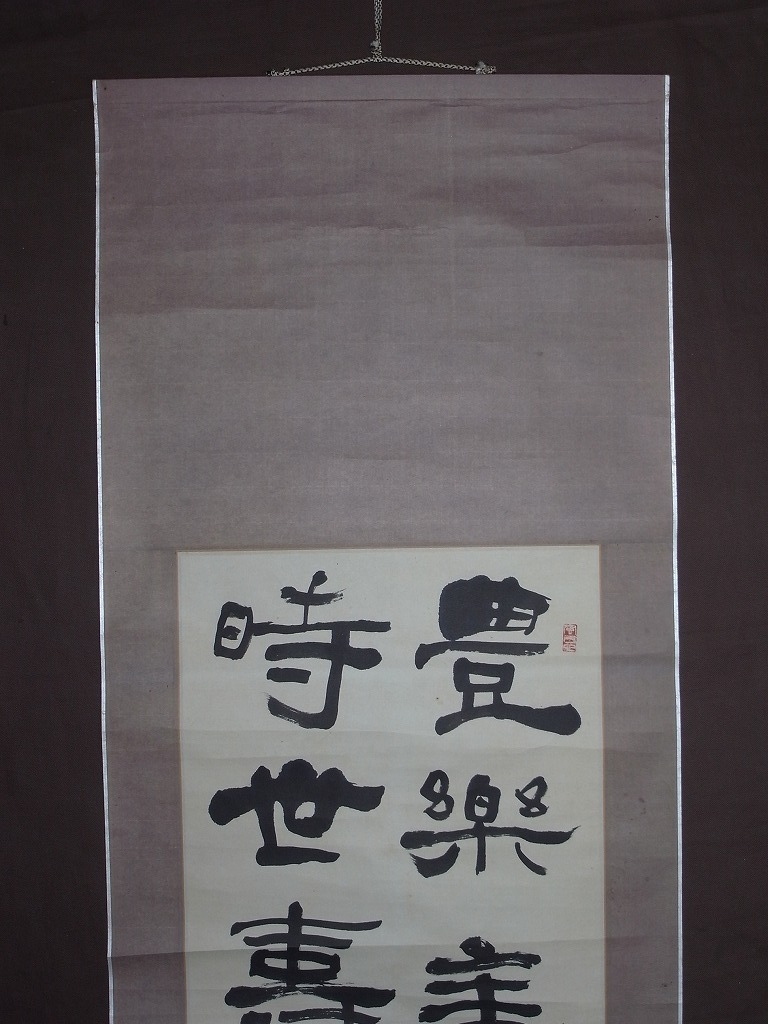 豊樂
時世壽